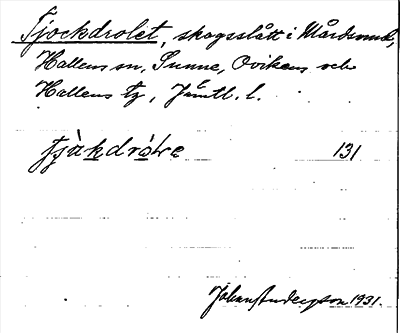 Tjockdrolet, skogsslått i Mårdsund,
Hallens sn, Sunne, Ovikens och
Hallens tg, Jämtl. l.
tjа̀kdrólɛ 131
Johan Anderzson 1931.